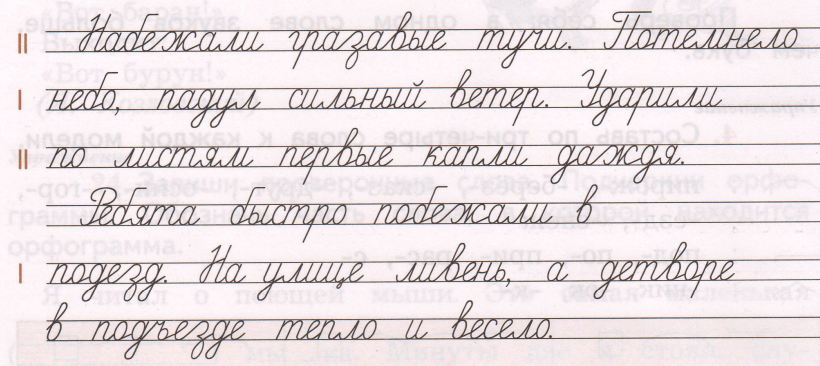 Набежали гразавые тучи. Потемнело
небо, падул сильный ветер. Ударили
по листям первые капли даждя.
Ребята быстро побежали в
подезд. На улице ливень, а детворе
в подъезде тепло и весело.